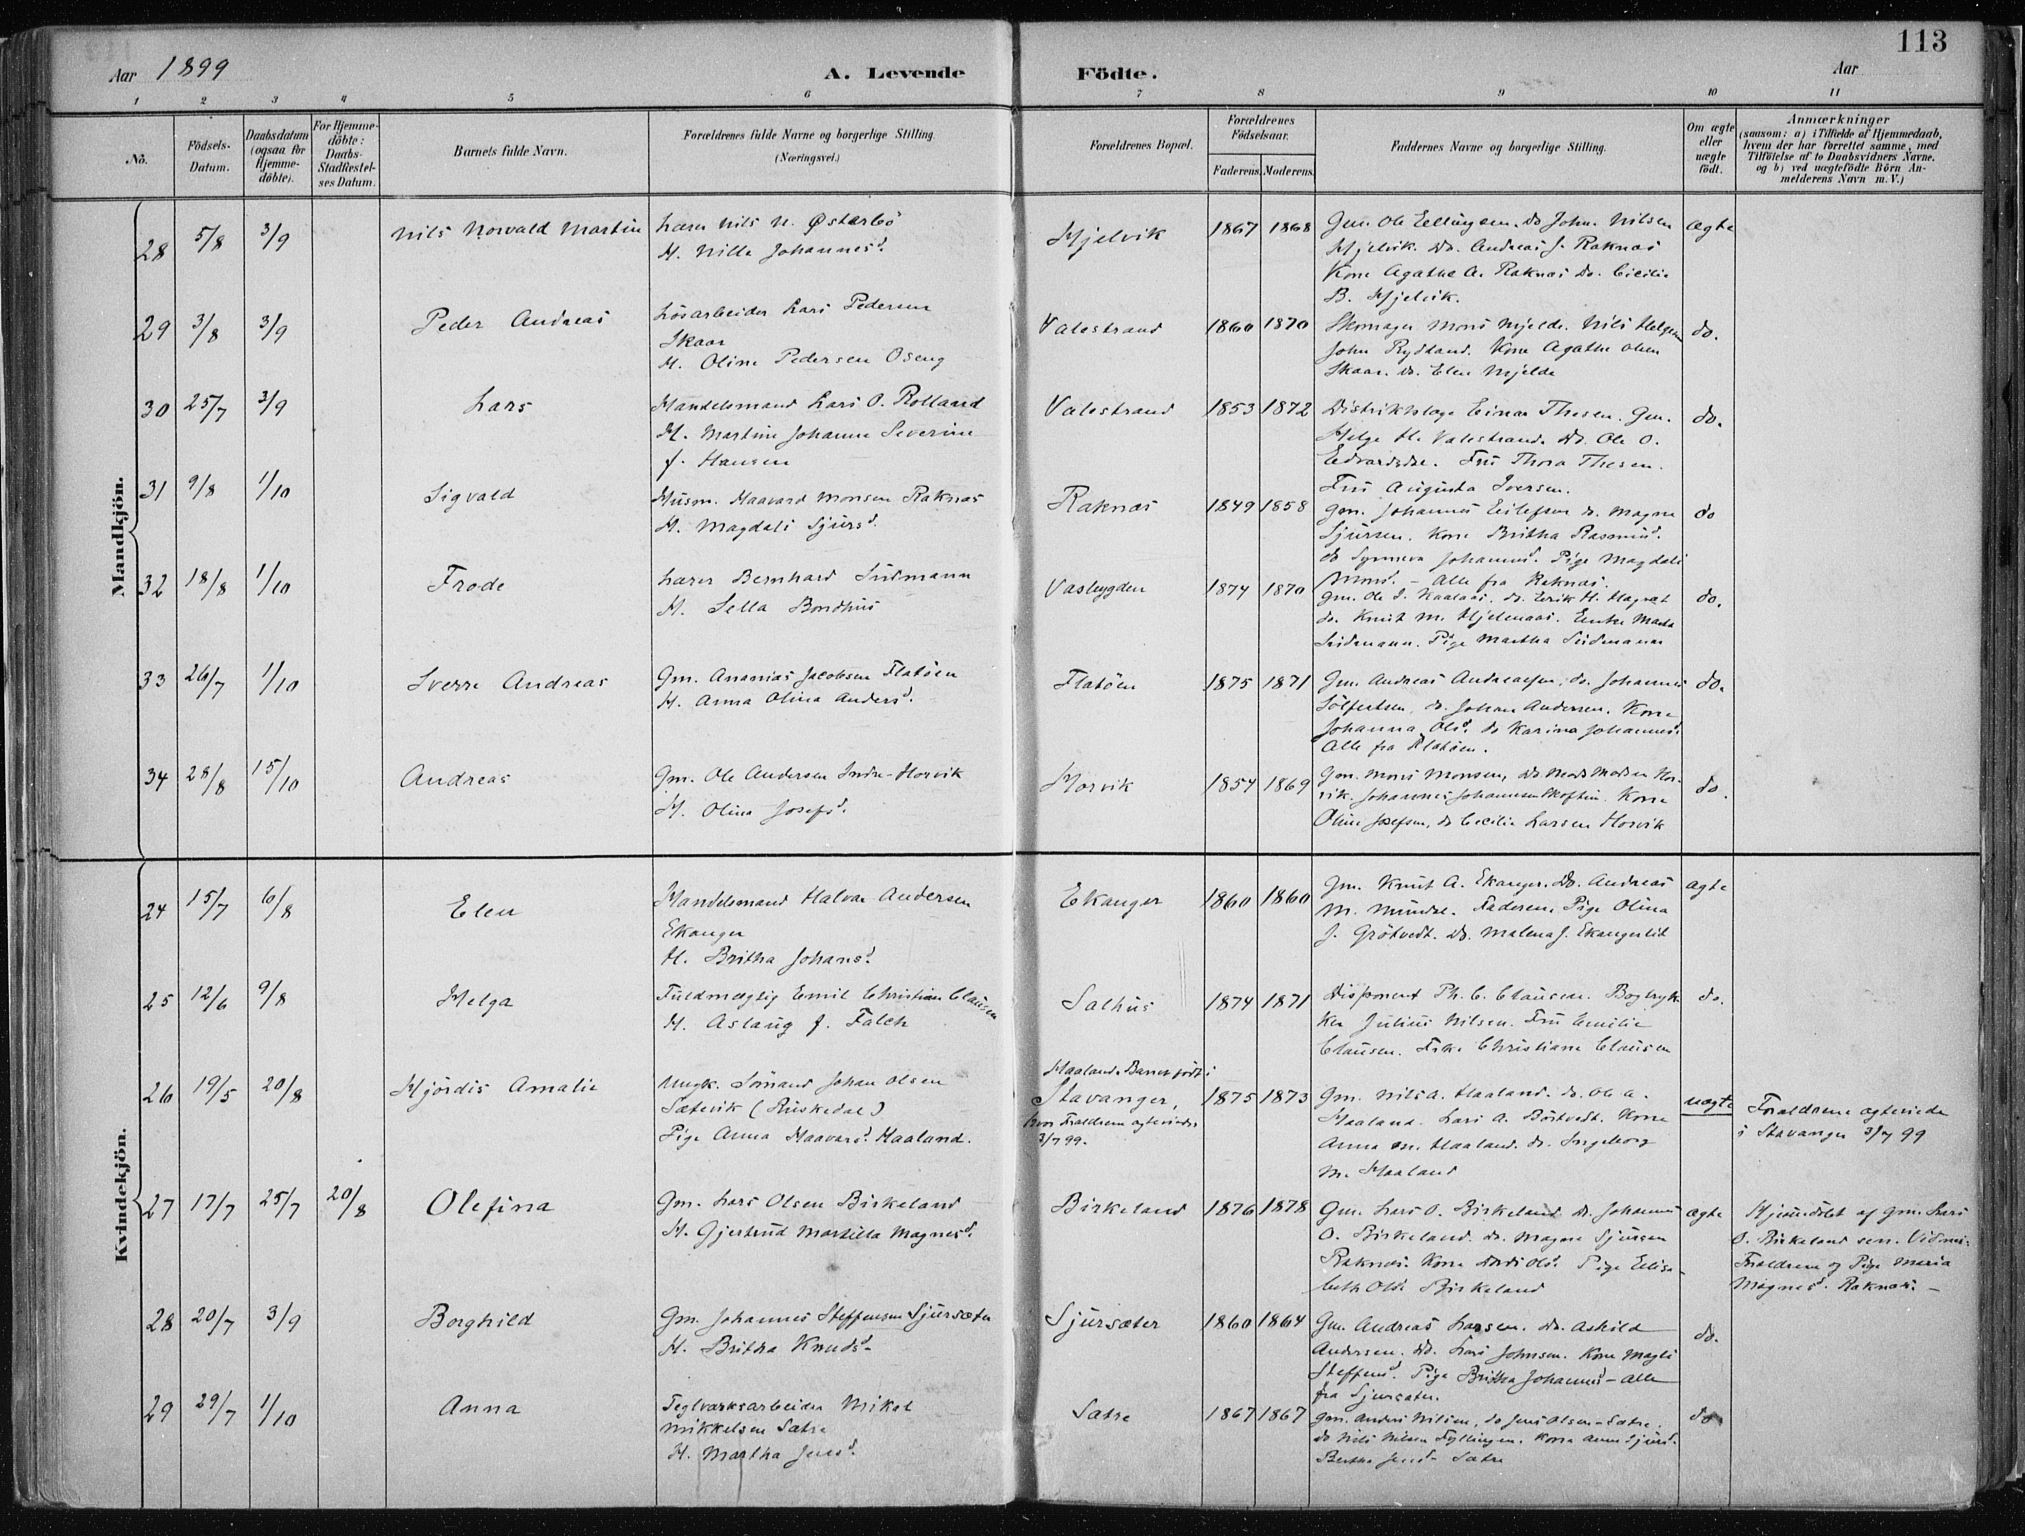 113
Aar 1899
A. Levende Födte.
Aar
1 2 3 4 5 6 7 8 9 10 11
No.
Födsels-Datum.
Daabsdatum (ogsaa for Hjemme-döbte).
For Hjemme-döbte: Daabs-Stadfæstel-ses Datum.
Barnets fulde Navn.
Forældrenes fulde Navne og borgerlige Stilling. (Næringsvei.)
Forældrenes Bopæl.
Forældrenes Födselsaar.
Faderens. Moderens.
Faddernes Navne og borgerlige Stilling.
Om ægte eller uægte födt.
Anmærkninger
(saasom: a) i Tilfælde af Hjemmedaab,
hvem der har forrettet samme, med
Tilföielse af to Daabsvidners Navne.
og b) ved uægtefödte Börn An-
melderens Navn m. V.)
Mandkjön.
28 5/8 3/9 Nils Norvald Martin
Lærer Nils N. Østerbö
H. Nille Johannesd.
Hjelvik 1867 1868
Gm. Ole Ellingsen. do John Nilsen
Hjelvik. do. Andreas J. Raknæs
Kone Agathe A. Raknæs do. Cicilie
B. Hjelvik.
ægte
29 3/8 3/9 Peder Andreas
Lösarbeider Lars Pedersen
Skaar
H. Oline Pedersen Oseng
Valestrand 1860 1870
Skomager Mons Mjelde. Nils Helgesen
John Rydland. Kone Agathe Olsen
Skaar. do. Elen Mjelde
do.
30 25/7 3/9 Lars
Handelsmand Lars O. Rolland
H. Martine Johanne Severine
f. Hansen
Valestrand 1853 1872
Distriktslæge Einar Thesen. Gm.
Helge H. Valestrand. do. Ole O.
Fru Thora Thesen.
Fru Augusta Iversen.
do.
31 9/8 1/10 Sigvald
Husm. Haavard Monsen Raknæs
H. Magdali Sjursd.
Raknæs 1849 1858
Gm. Johannes Eilefsen do. Magne
Sjursen. Kone Britha Rasmusd.
do Synneva Johannesd. Pige Magdali
Monsd. - Alle fra Raknæs.
do
32 18/8 1/10 Frode
Lærer Bernhard Sudmann
H. Sella Bondhus
Vasbygden 1874 1870
Gm. Ole J. do. Erik H.
do. Knut M. Hjelmaas. Enke Marta
Sudmann. Pige Martha Sudmann
do.
33 26/7 1/10 Sverre Andreas
Gm. Ananias Jacobsen Flatöen
H. Anna Olina Andersd.
Flatöen 1875 1871
Gm. Andreas Andreassen, do. Johannes
Sölfertsen, do. Johan Andersen. Kone
Johanna Olsd. do Karina Johannesd.
Alle fra Flatöen.
do.
34 28/8 15/10 Andreas
Gm. Ole Andersen Indre-Horvik
H. Olina Josefsd.
Horvik 1854 1869
Gm. Mons Monsen, do Mads Madsen Hor-
vik. Johannes Johannesen Kone
Oline Josefsen, do Cecilie Larsen Horvik
do.
Kvindekjön.
24 15/7 6/8 Elen
Handelsmand Halvar Andersen
Ekanger
H. Britha Johansd.
Ekanger 1860 1860
Gm. Knut A. Ekanger. do. Andreas
M. Mundal. Faderen. Pige Olina
J. Grötvedt. do. Malena J. Ekangerlid
ægte
25 12/6 9/8 Helga
Fuldmægtig Emil Christian Clausen
H. Aslaug f. Falch
Salhus 1874 1871
Disponent Th. C. Clausen. Bogtryk-
ker Julius Nilsen. Fru Emilie
Clausen. Frk. Christiane Clausen
do.
26 19/5 20/8 Hjördis Amalie
Ungk. Sömand Johan Olsen
Sætevik (Ruskedal)
Pige Anna Haavarsd. Haaland.
Haaland. Barnet födt i
Stavanger,
hvor Forældrene ægteviedes
3/7 99.
1875 1873
Gm. Nils A. Haaland. do. Ole A.
Haaland. Lars A. Börtvedt. Kone
Anna M. Haaland. do. Ingeborg
M. Haaland
uægte
Forældrene ægteviede
i Stavanger 3/7 99
27 17/7 25/7 20/8 Olefina
Gm. Lars Olsen Birkeland
H. Gjertrud Martilla Magnesd.
Birkeland 1876 1878
Gm. Lars O. Birkeland do. Johannes
O. Birkeland. do. Magne Sjursen
Raknæs. Kone Olsd. Pige Elisa-
beth Olsd. Birkeland
ægte
Hjemmedöbt af Gm. Lars
O. Birkeland sen. Vidner:
Forældrene og Pige Maria
Magnesd. Raknæs. -
28 20/7 3/9 Borghild
Gm. Johannes Steffensen Sjursæter
H. Britha Knudsd.
Sjursæter 1860 1864
Gm. Andreas Larsen. do. Askild
Andersen. do. Lars Johnsen. Kone Magli
Steffensd. Pige Britha Johannesd - Alle
fra Sjursæter.
do.
29 29/7 1/10 Anna
Teglværksarbeider Mikal
Mikkelsen Sætre
H. Martha Jensd.
Sætre 1867 1867
Gm. Anders Nilsen, do Jens Olsen - Sætre.
do Nils Nilsen Fyllingen. Kone Anna Sjursd.
Bertha Jensd - Sætre
do